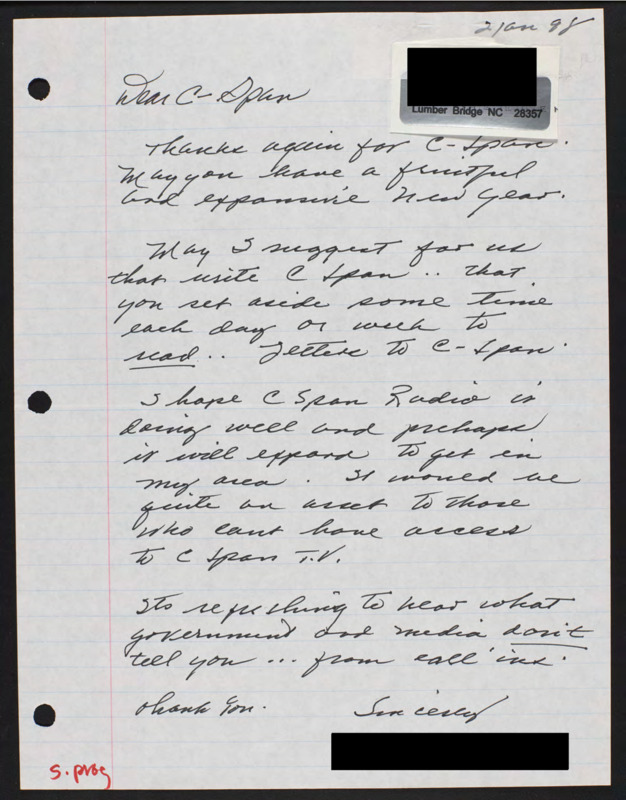 2 Jan 98
Lumber Bridge NC 28357
Dear C-Span
Thanks again for C-Span.
May you have a fruitful
and expansive New Year.
May I suggest for us
that write C Span .. that
you set aside some time
each day or week to
read .. Letters to C-Span.
I hope C Span Radio is
doing well and perhaps
it will expand to get in
my area. It would be
quite an asset to those
who cant have access
to C Span T.V.
Its refreshing to hear what
government and media don't
tell you ... from call ins.
Thank You. Sincerely
S. prog